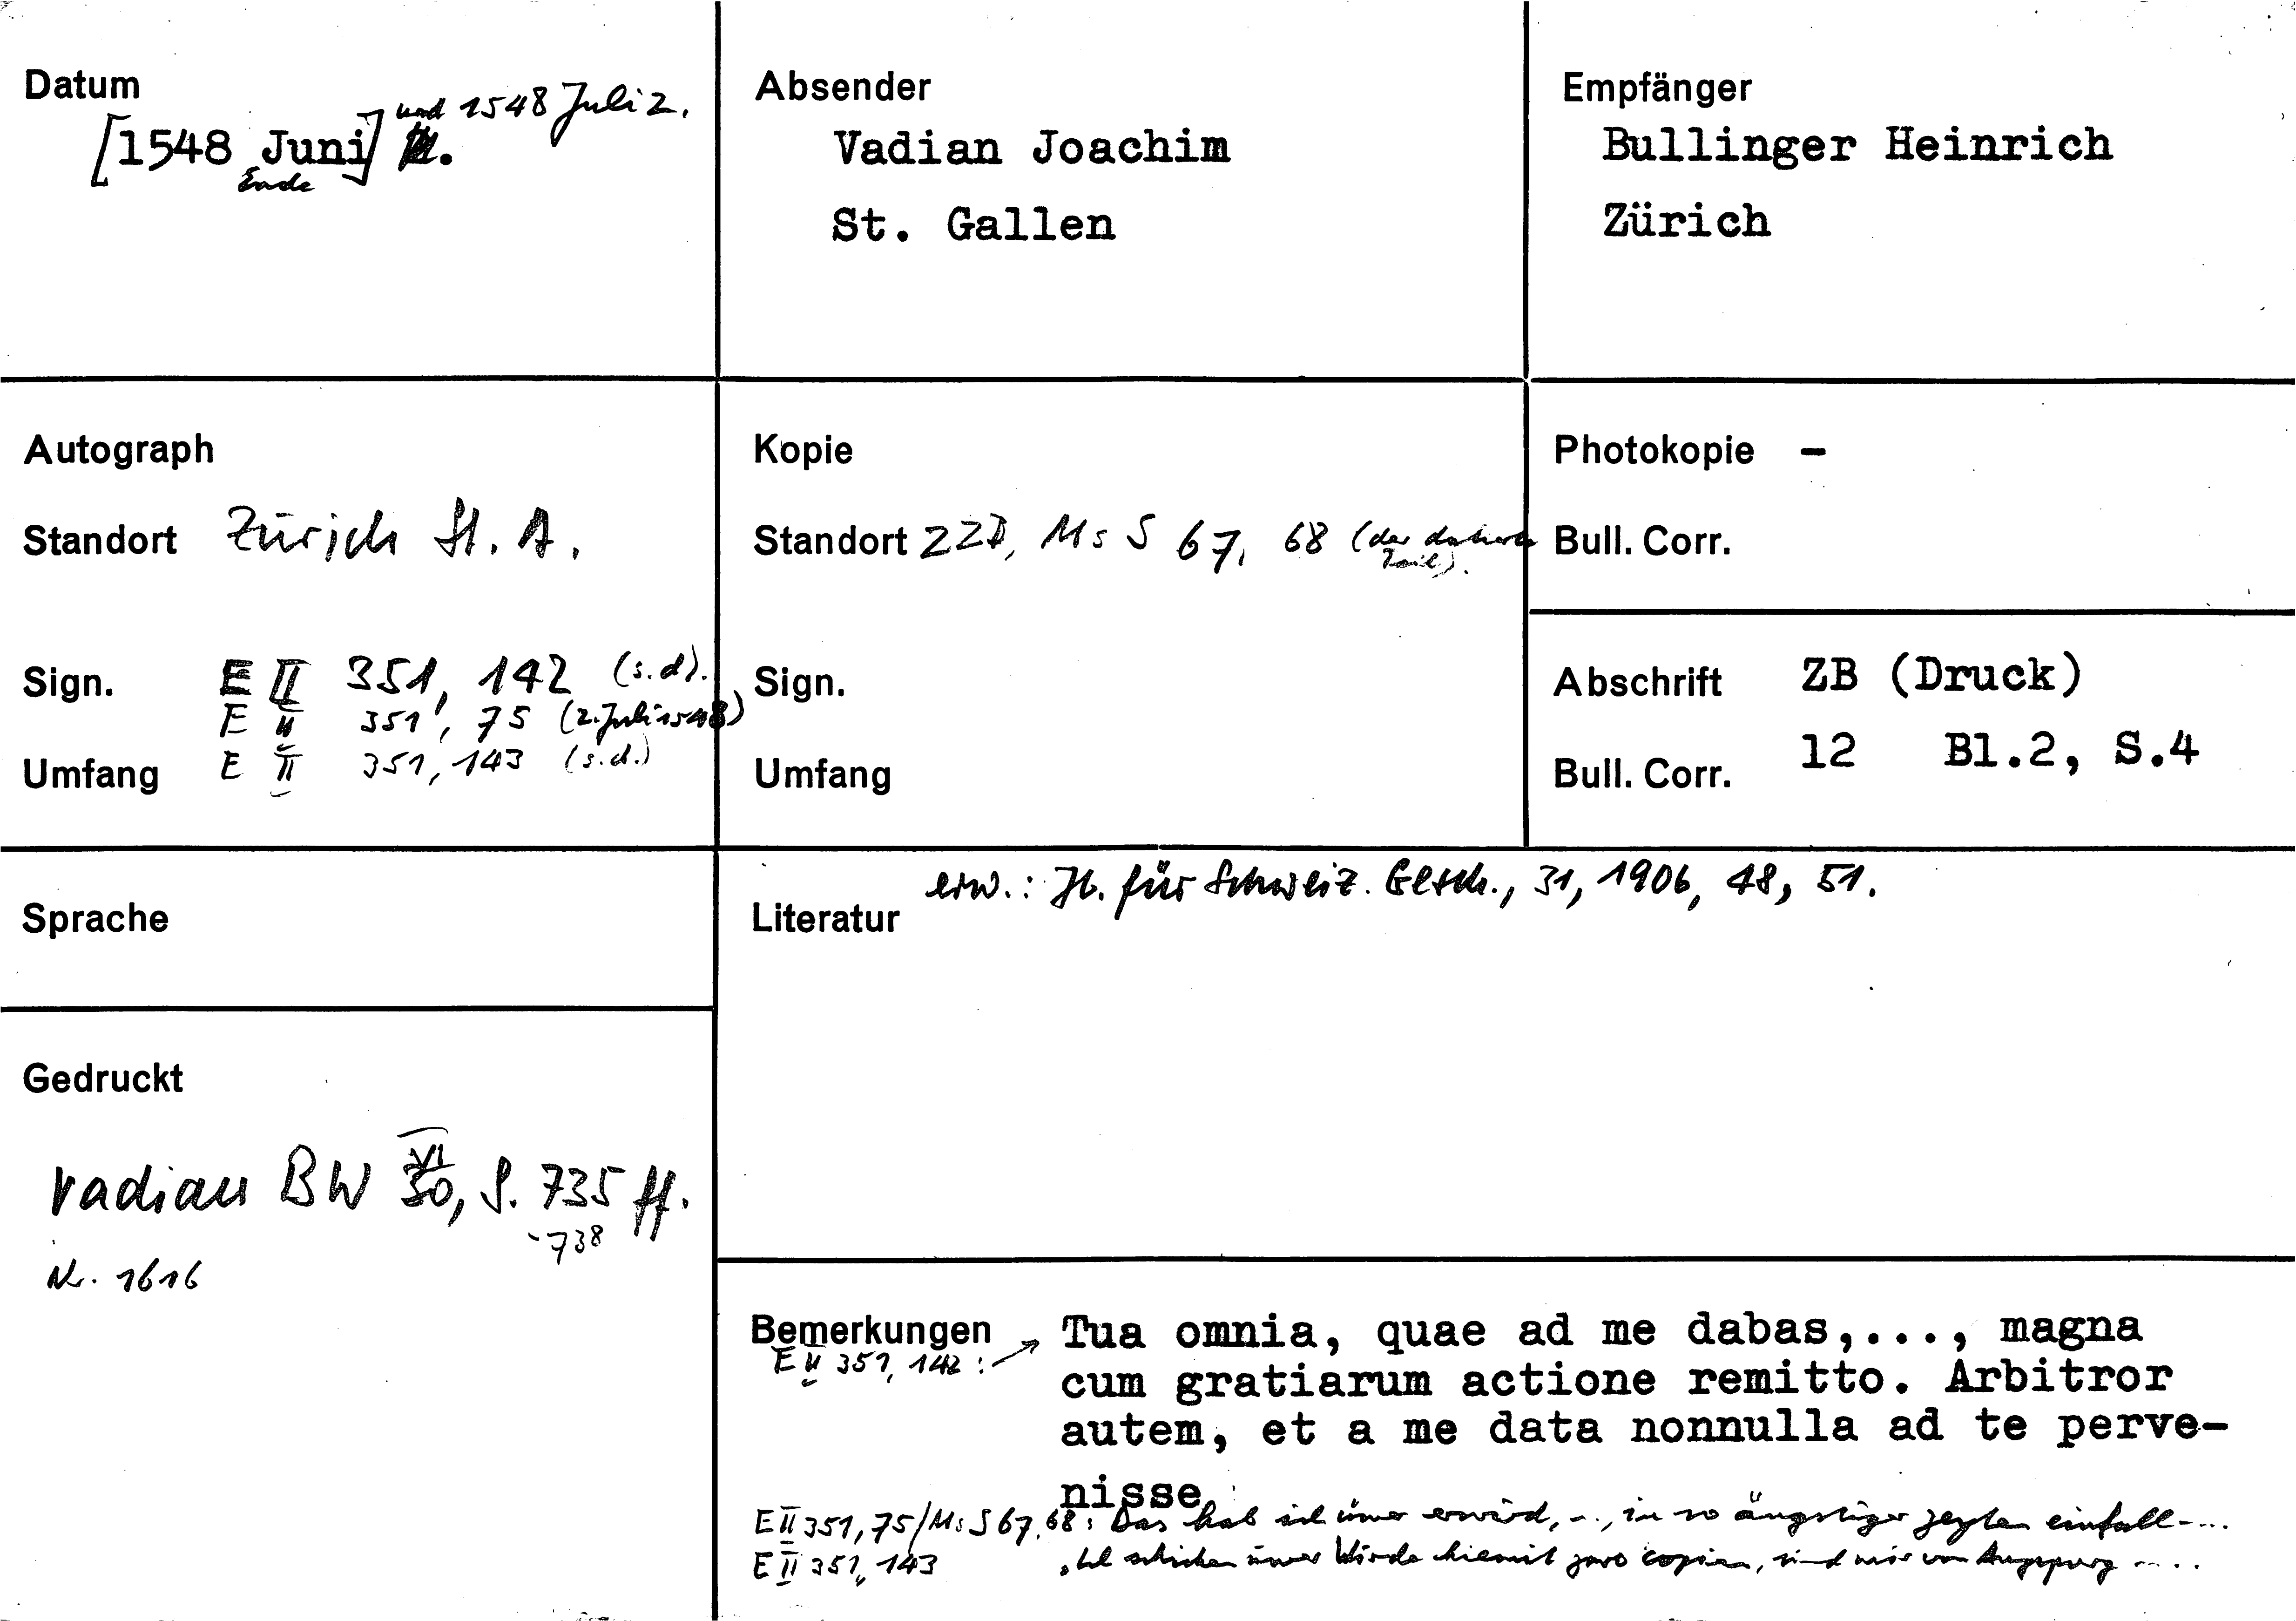 Datum
[1548 Juni] und 1548 Juli 2.
Ende
Absender
Vadian Joachim
St. Gallen
Empfänger
Bullinger Heinrich
Zürich
Autograph
Standort Zürich St. A.
Sign. E II 351, 142 (s.d).
E II 351, 75 (2. Juli 1548)
Umfang E II 351, 143 (s.d.)
Kopie
Standort ZZB, Ms S 67, 68 (der datierte
Teil).
Sign.
Umfang
Photokopie -
Bull. Corr.
Abschrift ZB (Druck)
Bull. Corr. 12 Bl.2, S.4
Sprache
Literatur erw.: Jb. für Schweiz. Gesch., 31, 1906, 48, 51.
Gedruckt
Vadian BW VI, S. 735 ff.
-738
Nr. 1616
Bemerkungen
E II 351, 142 :
Tua omnia, quae ad me dabas,..., magna
cum gratiarum actione remitto. Arbitror
autem, et a me data nonnulla ad te perve-
nisse.
E II 351, 75/Ms S 67, 68: Das hab ich üwer erwird, .., in so ängstiger zeyten einfall....
E II 351, 143 Ich schicken üwer Wirde hiemit zwo copien, sind mir von Augspurg .....